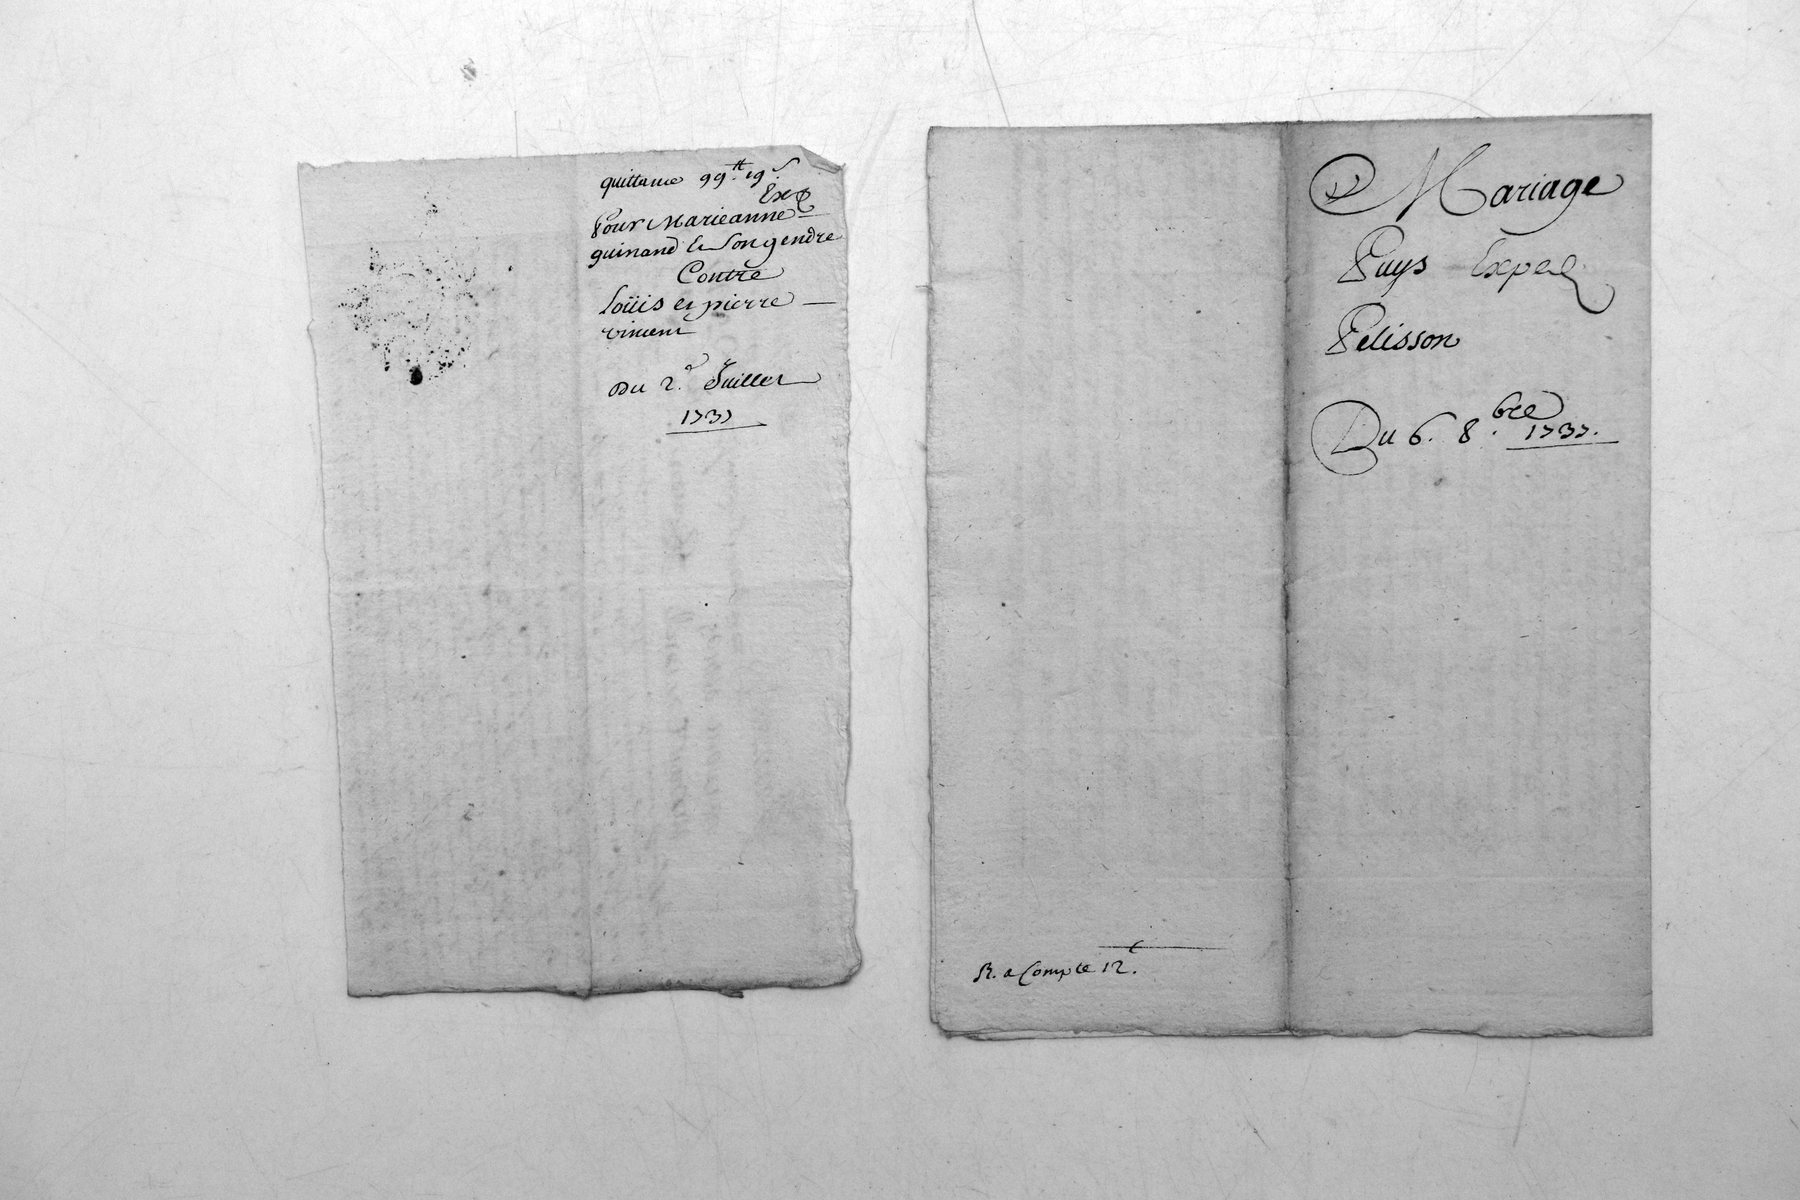 quittance 99.tt 19.s
Exp
Pour Marieanne
guinand et son gendre
Contre
Loüis et pierre
vincent
Du 2.e Juillet
1737
Mariage
Puys Exped
Pelisson
Du 6. 8.bre 1737.
R. a Compte 12.